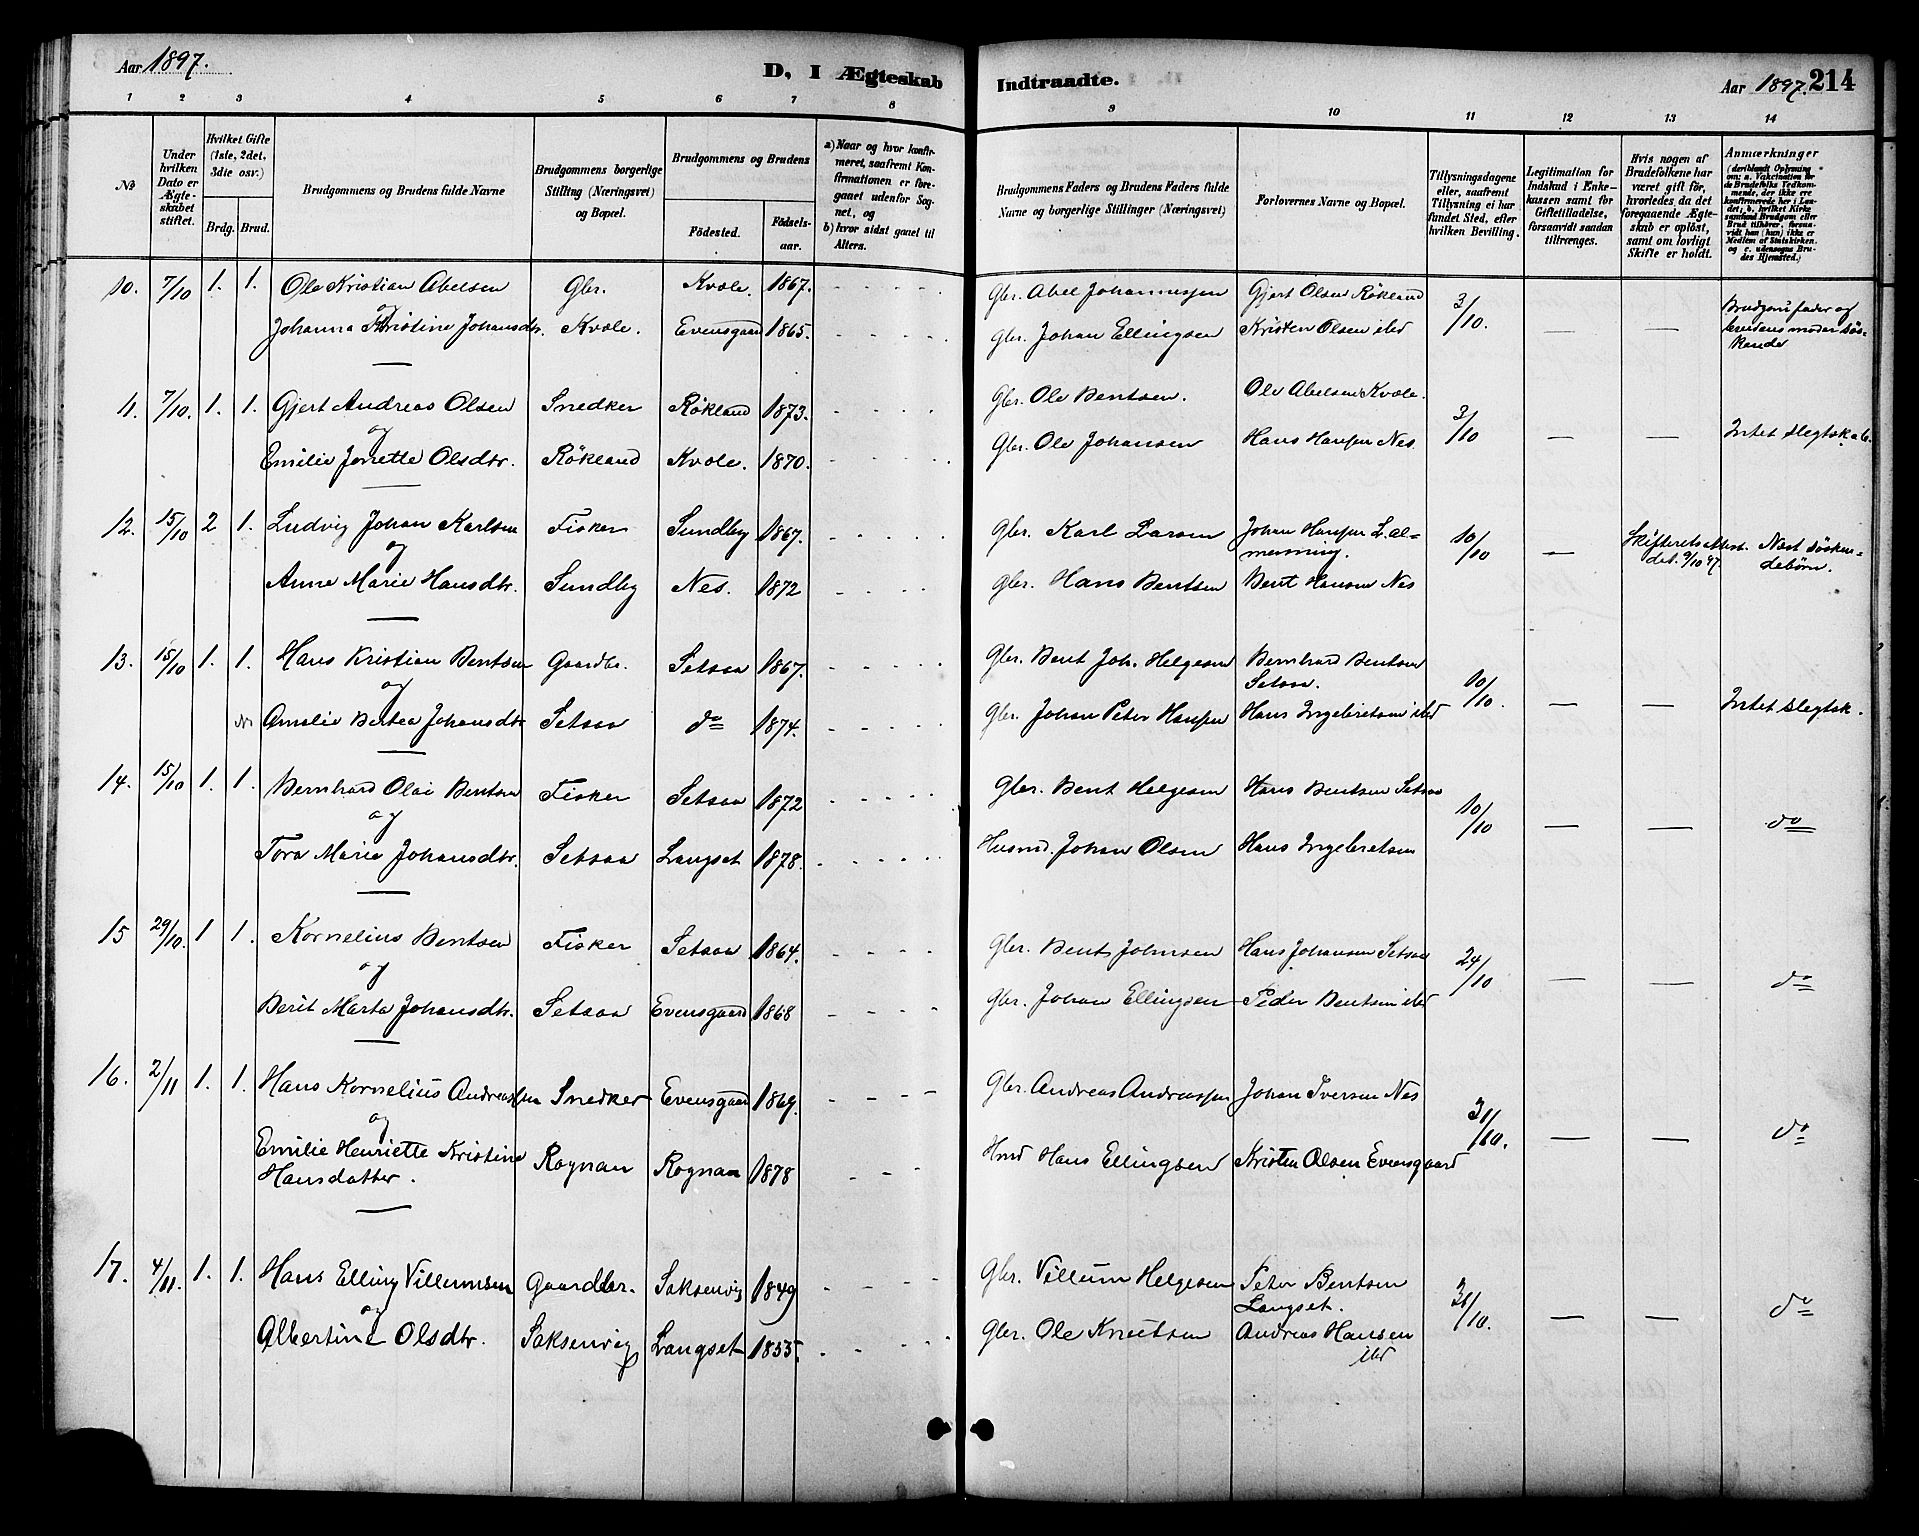 Aar 1897.
D, I Ægteskab
Indtraadte.
Aar 1897.
214
1 2 3 4 5 6 7 8 9 10 11 12 13 14
No
Under hvilken Dato er Ægteskabet stiftet.
Hvilket Gifte (1ste, 2det, 3die osv.)
Brdg. Brud.
Brudgommens og Brudens fulde Navne
Brudgommens borgerlige Stilling (Næringsvei) og Bopæl.
Brudgommens og Brudens
Fødested.
Fødselsaar.
a) Naar og hvor konfirmeret, saafremt Konfirmationen er foregaaet udenfor Sognet, og
b) hvor sidst gaaet til Alters.
Brudgommens Faders og Brudens Faders fulde Navne og borgerlige Stillinger (Næringsvei)
Forlovernes Navne og Bopæl.
Tillysningsdagene eller, saafremt Tillysning ei har fundet Sted, efter hvilken Bevilling.
Legitimation for Indskud i Enkekassen samt for Giftetilladelse, forsaavidt saadan tiltrænges.
Hvis nogen af Brudefolkene har været gift før, hvorledes da det foregaaende Ægteskab er opløst, samt om lovligt Skifte er holdt.
Anmærkninger
(deriblandt Oplysning om: a. Vakcination for de Brudefolks Vedkommende, der ikke ere konfirmerede her i Landet; b. hvilket Kirkesamfund Brudgom eller Brud tilhører, forsaavidt han (hun) ikke er Medlem af Statskirken, og c. udensogns Brudes Hjemsted.)
10. 7/10 1. 1. Ole Kristian Abelsen Gbr. Kvæle. 1867. Gbr. Abel Johannessen Gjert Olsen Røkland 3/10. — — Brudgoms fader og
og
Johanna Kristine Johansdtr. Kvæle. Evensgaard 1865. Gbr. Johan Ellingsen Kristen Olsen ibd brudens moder søs-
kende
11. 7/10. 1. 1. Gjert Andreas Olsen Snedker Røkland 1873. Gbr. Ole Bentsen. Ole Abelsen Kvæle. 3/10 — — Intet slegtskab.
og
Emilie Jonette Olsdtr. Røkland Kvæle. 1870. Gbr. Ole Johansen Hans Hansen Nes
12. 15/10 2 1. Ludvig Johan Karlsen Fisker Sundby 1867. Gbr. Karl Larsen Johan Hansen Lal- 10/10 — Skifterets attest. Næst søsken-
og menning. det. 9/10 97 debørn.
Anne Marie Hansdtr. Sundby Nes. 1872 Gbr. Hans Bentsen Bent Hansen Nes
13. 15/10 1. 1. Hans Kristian Bentsen Gaardbr. Setsaa 1867. Gbr. Bent Joh. Helgesen Bernhard Bentsen
og Setsaa. 10/10. — — Intet slegtsk.
Amalie Bertea Johansdtr Setsaa do 1874. Gbr. Johan Peter Hansen Hans Ingebretsen ibd
14. 15/10 1. 1. Bernhard Olai Bentsen Fisker Setsaa 1872 Gbr. Bent Helgesen Hans Bentsen Setsaa 10/10 — — do
og
Tora Marie Johansdtr. Setsaa Langset 1878. Husmd. Johan Olsen Hans Ingebretsen
15 29/10. 1 1. Kornelius Bentsen Fisker Setsaa 1864. Gbr. Bent Johnsen Hans Johansen Setsaa 24/10 — — do
og
Berit Marta Johansdtr. Setsaa Evensgaard 1868 Gbr. Johan Ellingsen Peder Bentsen ibd
16. 2/11 1. 1. Hans Kornelius Andreassen Snedker Evensgaard 1869. Gbr. Andreas Andreassen Johan Iversen Nes 31/10. — — do
og
Emilie Henriette Kristine Rognan Rognan 1878 Hmd Hans Ellingsen Kristen Olsen Evensgaard
Hansdatter.
17. 4/11. 1. 1. Hans Elling Villumsen Gaardbr. Saksenvig 1849 Gbr. Villum Helgesen Peter Bentsen 31/10. — — do
og Langset.
Albertine Olsdtr. Saksenvig Langset 1855. Gbr. Ole Knutsen Andreas Hansen
ibd